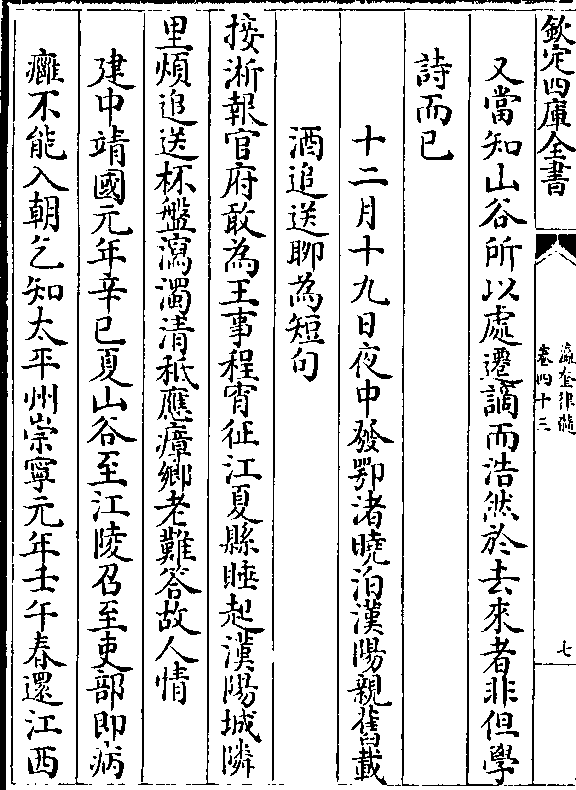 欽定四庫全書
瀛奎律髓
卷四十三
七
又當知山谷所以處遷謫而浩然於去來者非但學
詩而已
十二月十九日夜中發鄂渚曉泊漢陽親舊載
酒追送聊為短句
接淅報官府敢為王事程宵征江夏縣睡起漢陽城隣
里煩追送杯盤瀉濁清秪應瘴鄉老難答故人情
建中靖國元年辛巳夏山谷至江陵召至吏部即病
癰不能入朝乞知太平州崇寧元年壬午春還江西